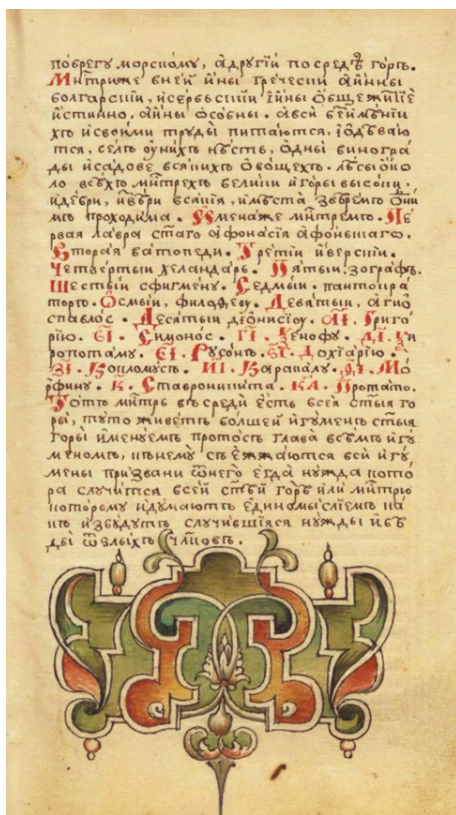 по брегу морскому, а другїй посредѣ горъ.
Мн҃трїже в ней и ины греческїи а ины
болгарскїи, и сербьскїи и ины общежитїе
истинно, а ины особны. а вси
хъ и своими труды питаются, и одѣваю
тся, селъ ꙋ нихъ нѣсть, одны виногра
ды и садове всякихъ овощехъ. лѣсы око
ло всѣхъ мн҃трехъ велики и горы высоки,
и дебри, и звѣри всякїя, и мѣста звѣремъ
проходима. Имена же мн҃тремъ. Пе
рвая лавра ст҃аго аѳонасїя аѳоньскаго.
Вторая ватопеди. Третїи иверскїи.
Четвертыи хеландарь. Пятыи зографъ.
Шестыи сфигмену. Седмыи. пантокра
торъ. Осмыи, филоѳеоу. Девятыи, агїо
спавлос. Десятыи дїонисїоу. АІ. Григо
рїю. ВІ. Симонос. ГІ. Ѯенофу. ДІ. Ки
ропотаму. ЕІ. Русонъ. ЅІ. Дохїарїю.
ЗІ. Котломусъ. ИІ. Каракалу. ѲІ. Мо
рфину. К. Ставроникита. КА. Протато.
Тотъ мн҃трь въ среди есть всея ст҃ыя го
ры, туто живетъ болшей игуменъ ст҃ыя
горы именуемъ протосъ глава всѣмъ игу
меномъ, и к нему съѣжжаются вси игу
мены призвани ѿ него егда нужда кото
ра случится всей ст҃ѣй горѣ или мн҃трю
которому и думаютъ единомыслїемъ ка
къ избудутъ случившїяся нужды и бѣ
ды ѿ злыхъ чл҃ковъ.